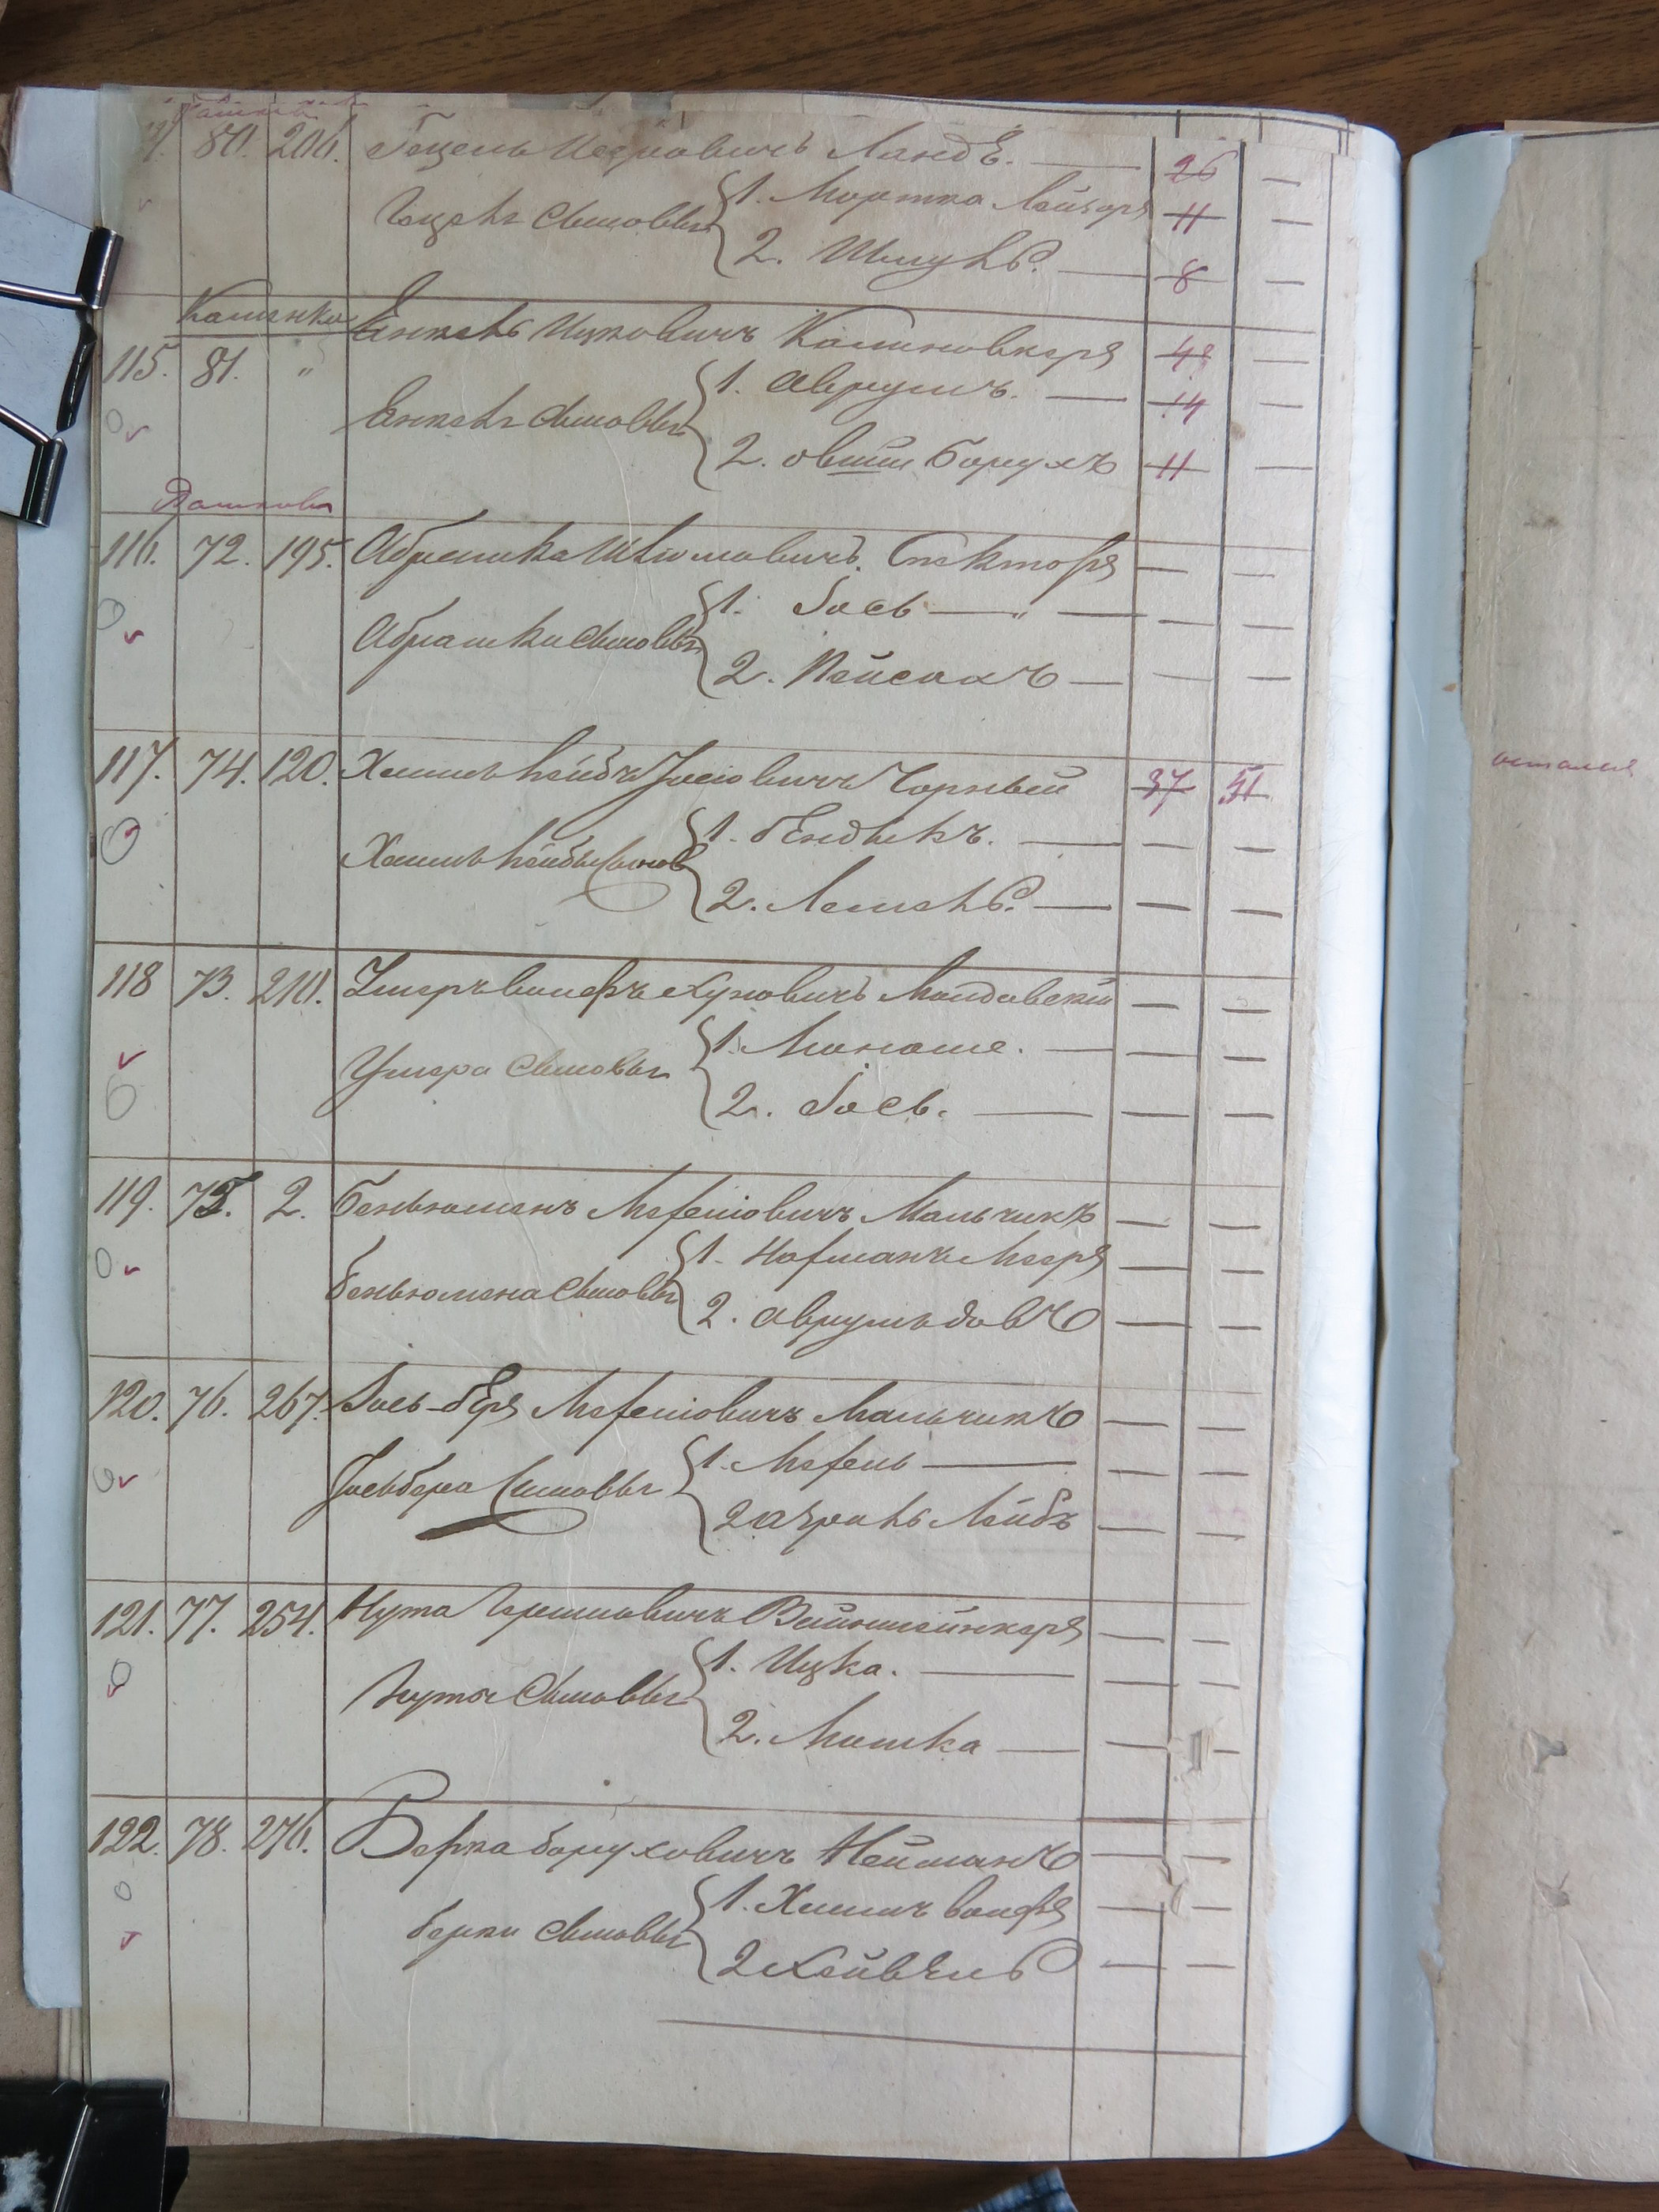 80. 206. Гецель Ландъ. — 26 —
Гецеля Сыновья 1. Мортко Лейзоръ 11 —
2. Шмуль. — 8 —
Каменка
115. 81. " Янкель Ицковичъ Каменовкеръ 48 —
Янкеля Сыновья 1. Аврумъ. — 14 —
2. Овшія Борухъ 11 —
Рашкова
116. 72. 195. Абрамка Шлiомовичъ Спекторъ — —
Абрамки Сыновья 1. Iось — " — — —
2. Пейсахъ — — —
117. 74. 120. Хаимъ Лейбъ Iосiовичъ Чорный 37 51
Хаимъ Лейбы Сыновья 1. Бендыкъ. — — —
2. Лемель. — — —
118 73. 210. Умеръ Вольфъ Хуновичъ Майдавскiй — —
Умера Сыновья 1. Монаше. — — —
2. Iось. — — —
119. 75. 2. Беньюменъ Мефшiовичъ Мальчикъ — —
Беньюмена Сыновья 1. Нафманъ Мееръ — —
2. Аврумъ Довъ — —
120. 76. 267. Iось-Беръ Мальчикъ — —
Iосьбера Сыновья 1. — — —
2 Азраиль Лейбъ — —
121. 77. 254. Нута Гершковичъ Вейнштейнкеръ — —
Нуты Сыновья 1. Ицка. — — —
2. Мошка — — —
122. 78. 276. Берка Боруховичъ Нейманъ — —
Берки Сыновья 1. Хаимъ Вольфъ — —
2 Лейвель — —
остался